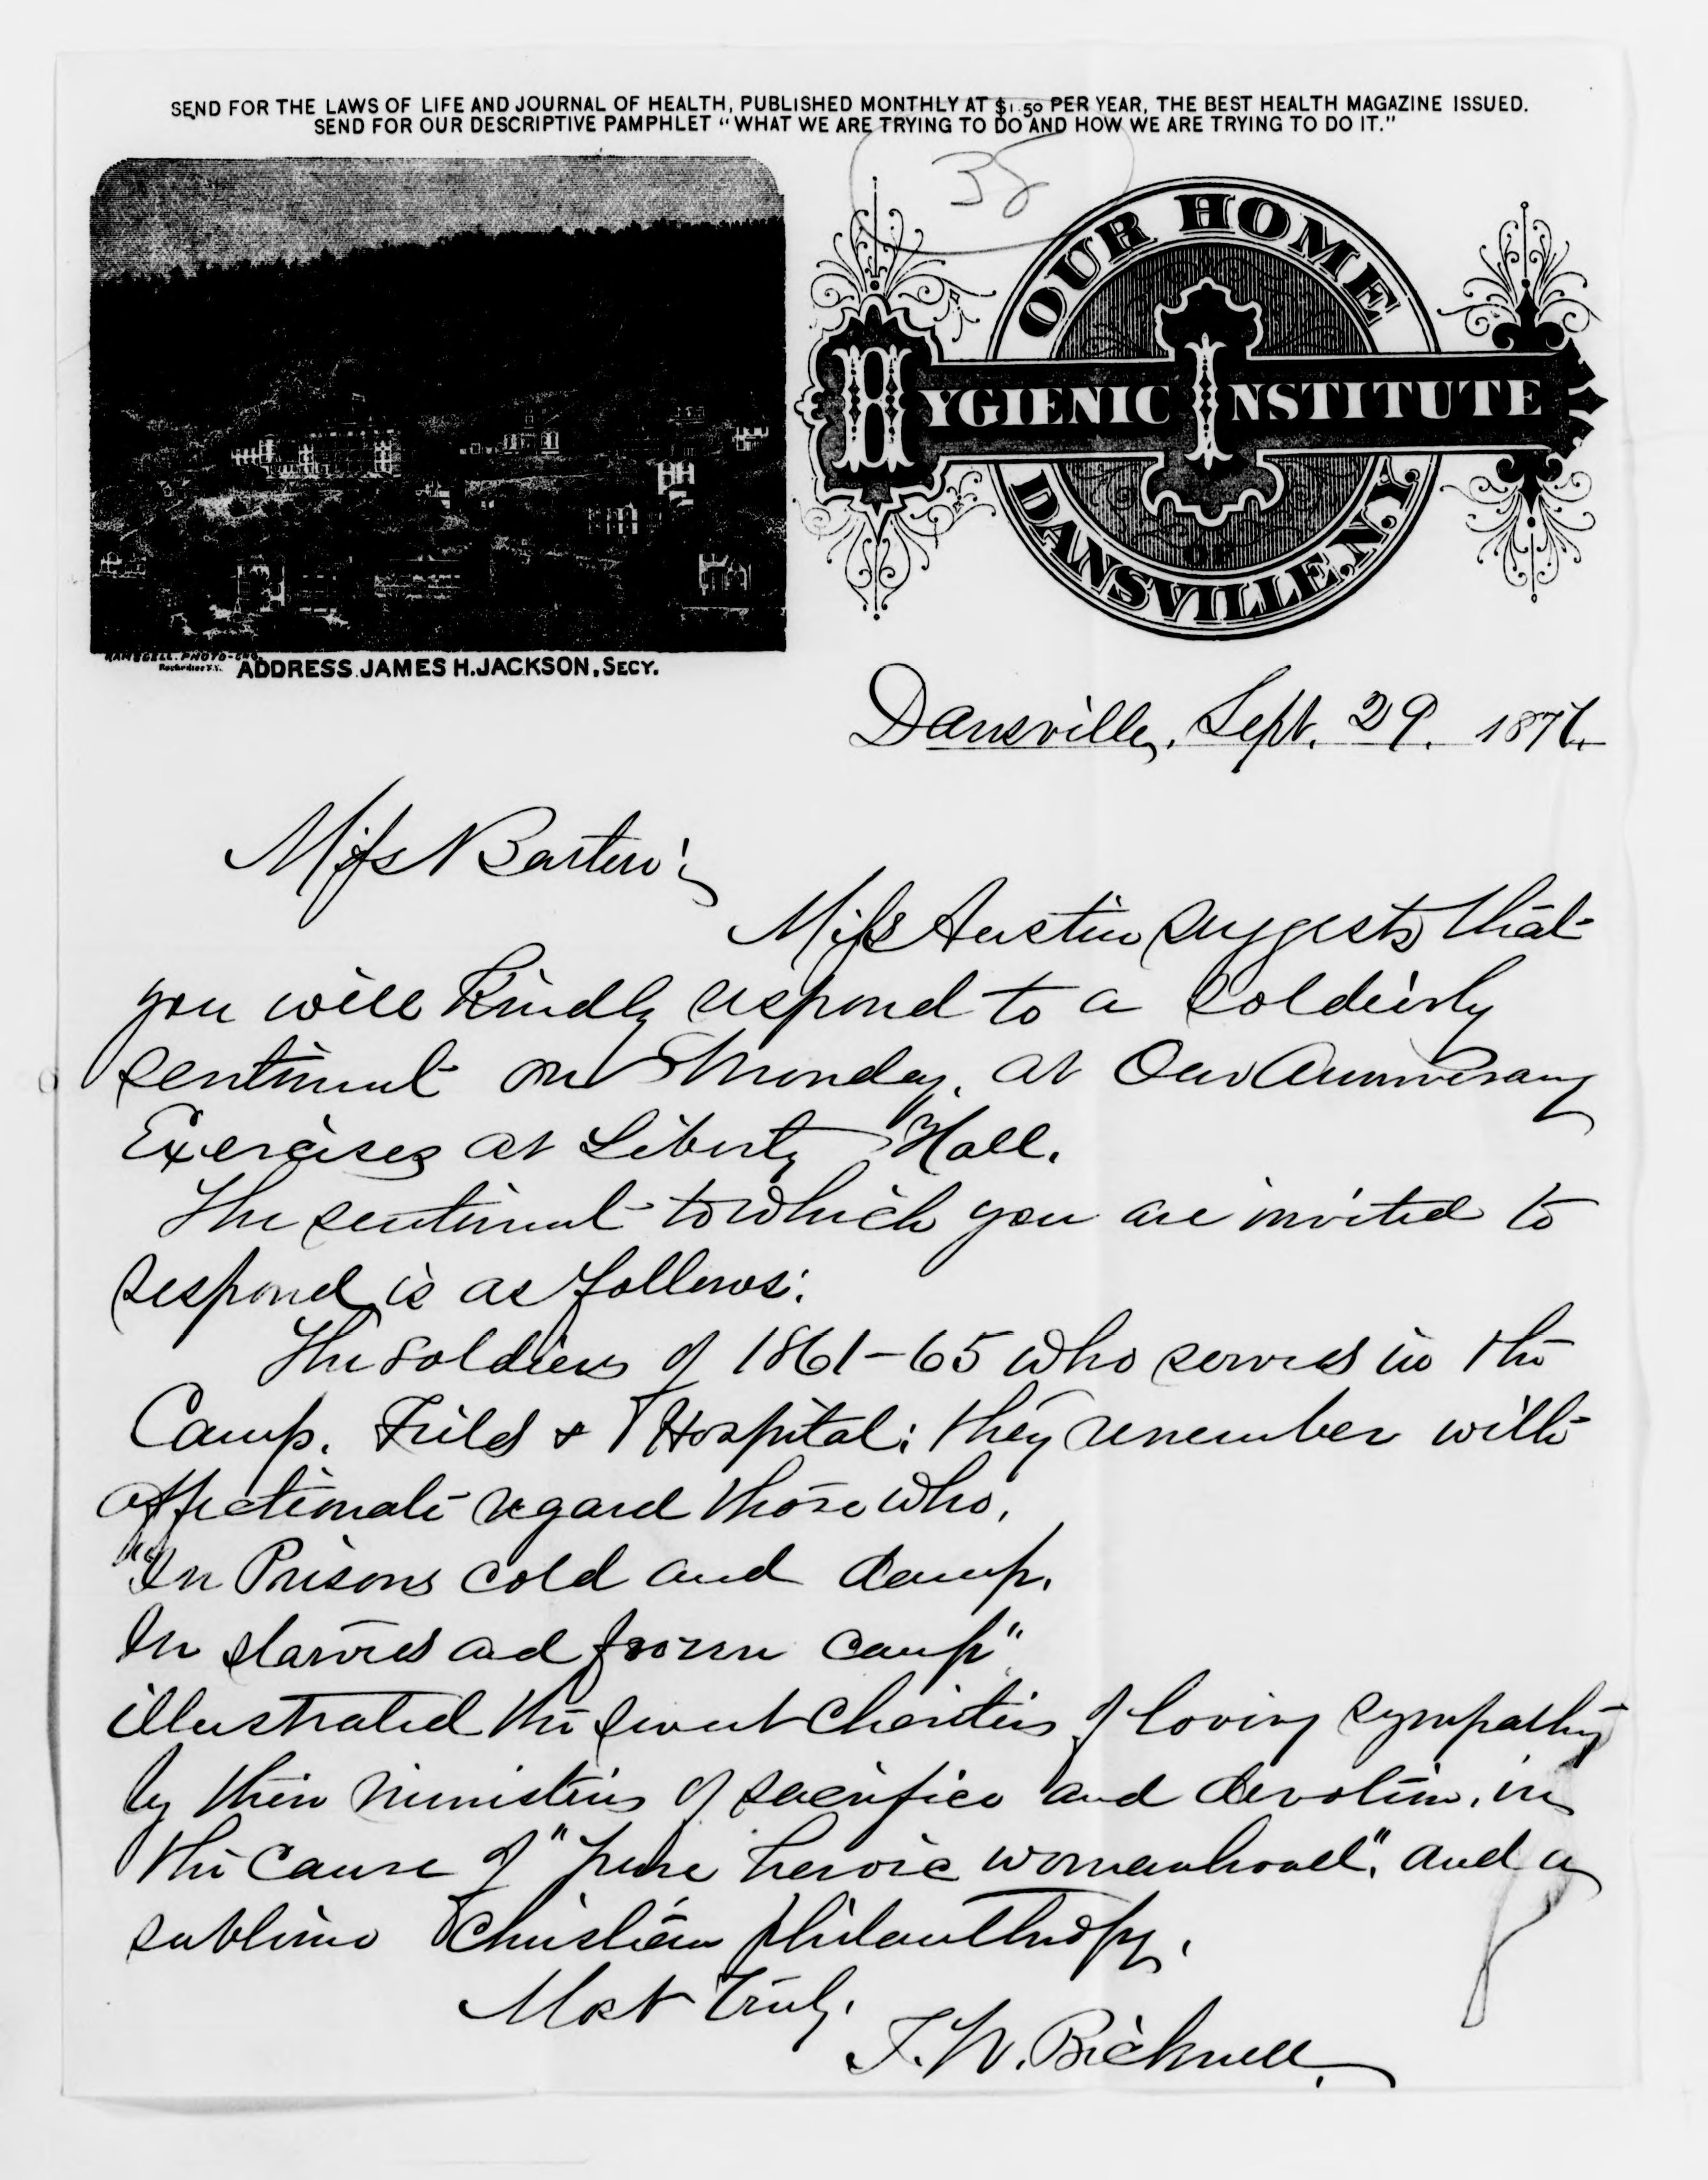 SEND FOR THE LAWS OF LIFE AND JOURNAL OF HEALTH, PUBLISHED MONTHLY AT $1.50 PER YEAR, THE BEST HEALTH MAGAZINE ISSUED.
SEND FOR OUR DESCRIPTIVE PAMPHLET "WHAT WE ARE TRYING TO DO AND HOW WE ARE TRYING TO DO IT."
38
OUR HOME
HYGIENIC INSTITUTE
OF
DANSVILLE, N.Y.
RAMSDELL. PHOTO-ENG.
Rochester N.Y.
ADDRESS JAMES H. JACKSON, SECY.
Dansville, Sept. 29. 1876.
Miss Barton;
Miss Austin suggests that
you will kindly respond to a soldierly
sentiment on Monday, at Our Anniversary
Exercises at Liberty Hall.
The sentiment to which you are invited to
respond is as follows:
The soldiers of 1861-65 who served in the
Camp, Field & Hospital; they remember with
affectionate regard those who,
"In Prisons cold and damp,
In starved and frozen camp"
illustrated the sweet charities of loving sympathy
by their ministries of sacrifice and devotion, in
the cause of "pure heroic womanhood", and a
sublime Christian philanthropy.
Most Truly,
T. W. Bicknell.